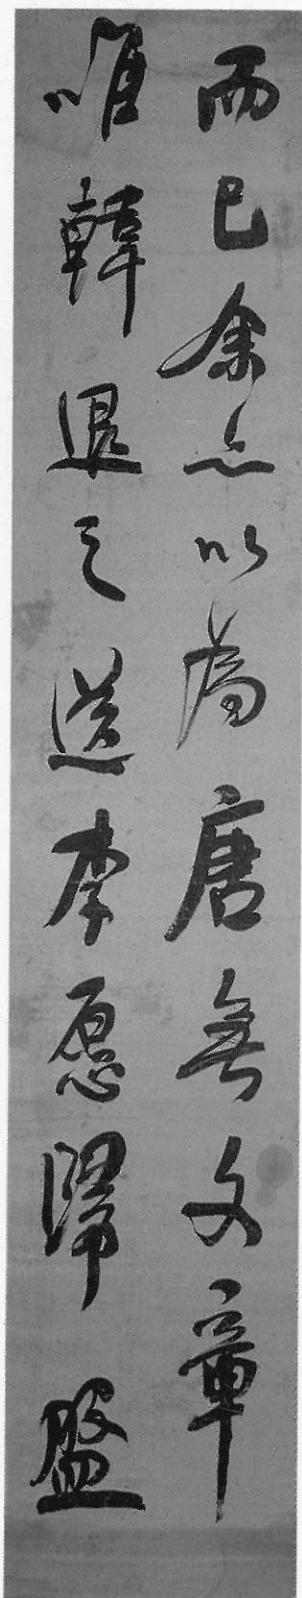 而已余亦以為唐無文章
唯韓退之送李愿歸盤